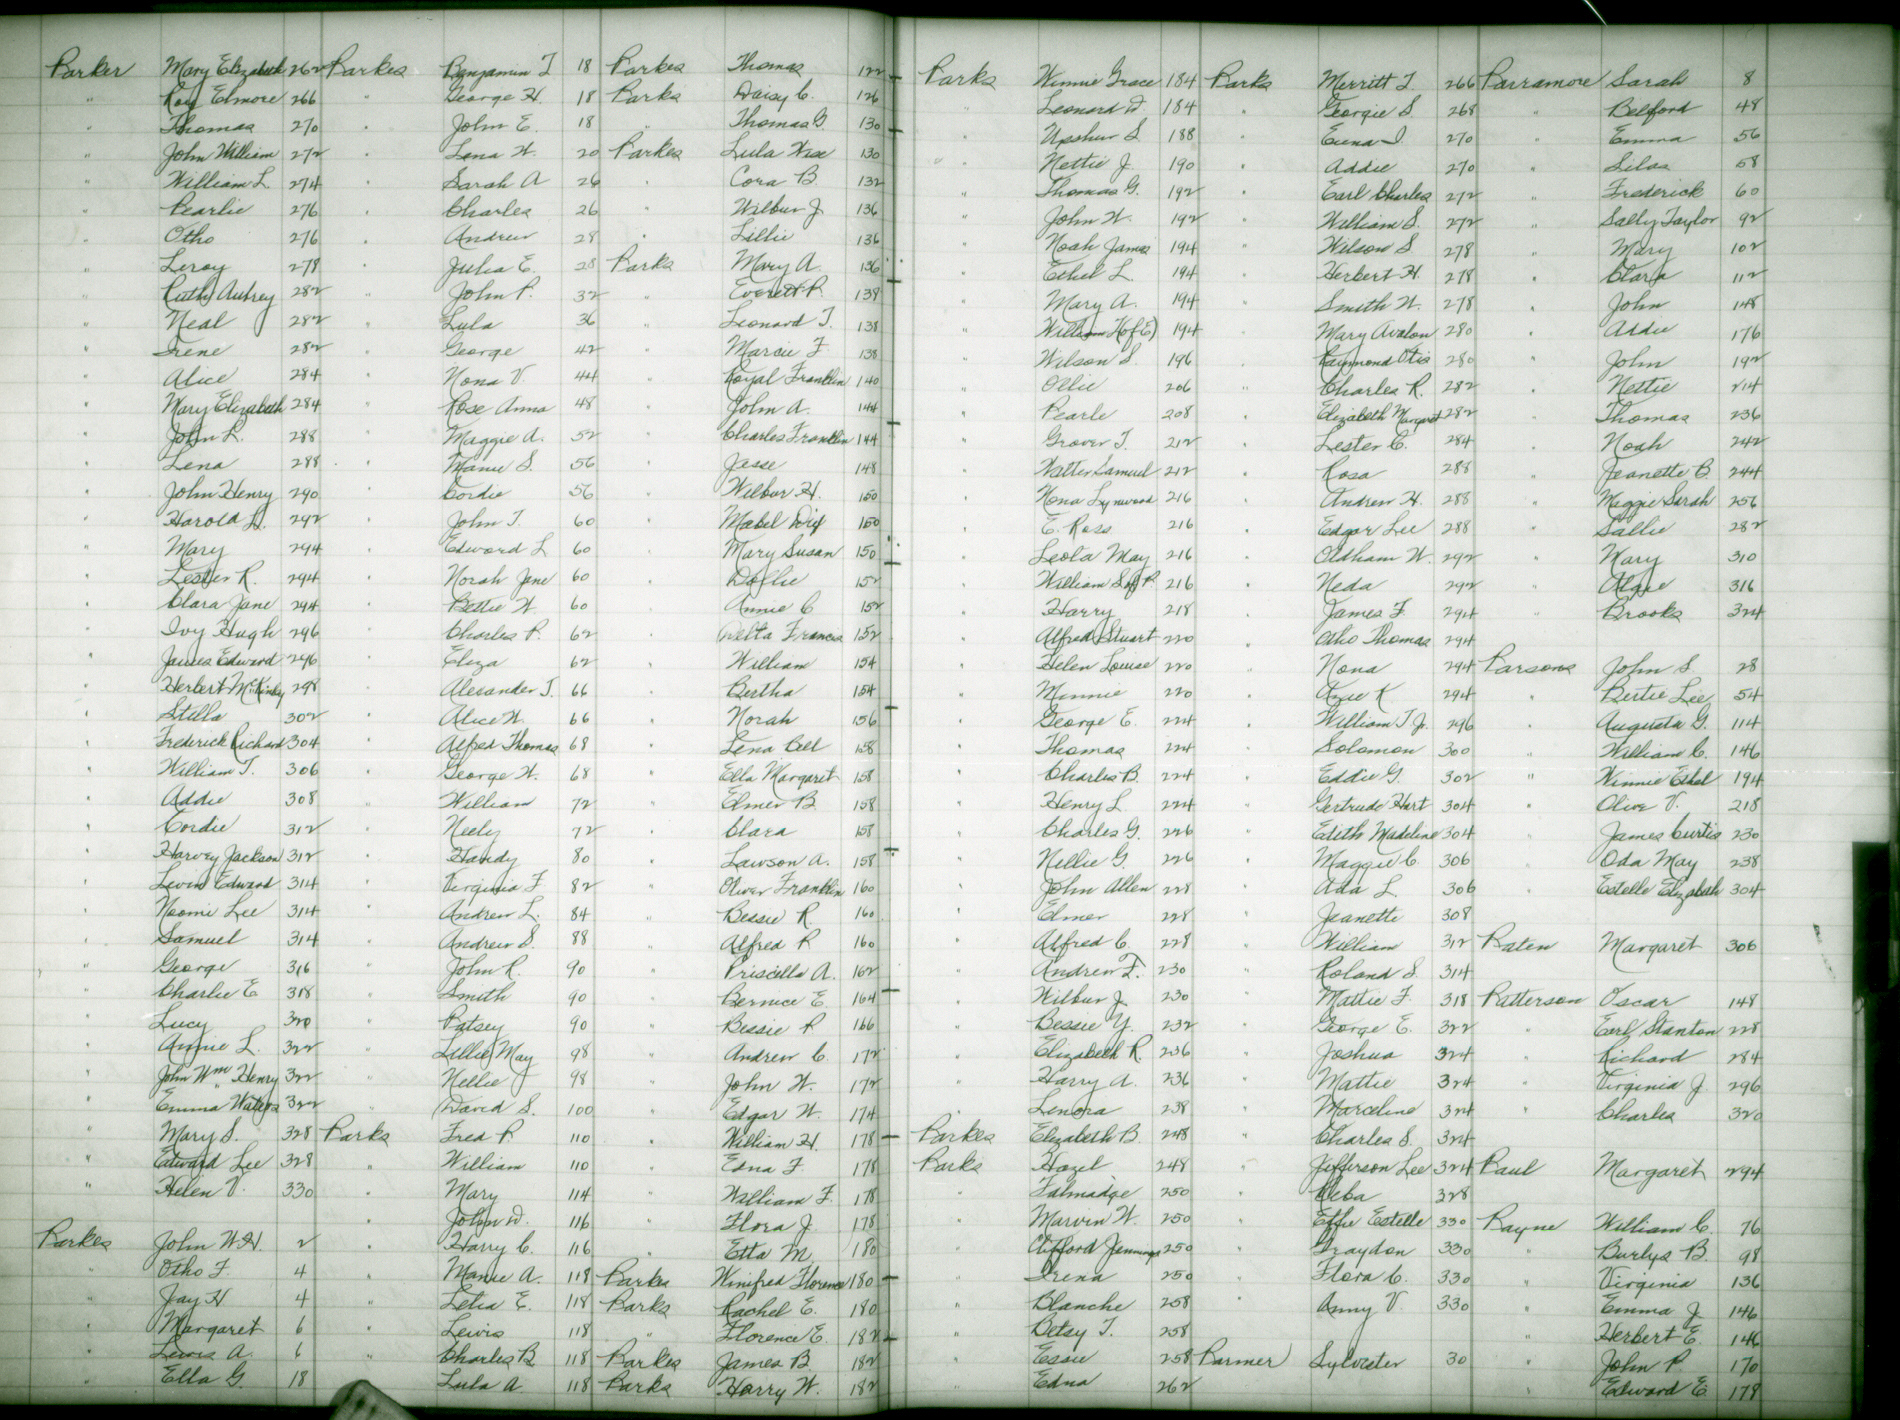 Parker Mary Elizabeth 262
" Roy Elmore 266
" Thomas 270
" John William 272
" William L. 274
" Pearlie 276
" Otho 276
" Leroy 278
" Ruth Autrey 282
" Neal 282
" Irene 282
" Alice 284
" Mary Elizabeth 284
" John L. 288
" Lena 288
" John Henry 290
" Harold L. 292
" Mary 294
" Lester R. 294
" Clara Jane 294
" Ivy Hugh 296
" James Edward 296
" Herbert McKinley 298
" Stella 302
" Frederick Richard 304
" William T. 306
" Addie 308
" Cordie 312
" Harvey Jackson 312
" Levin Edward 314
" Naomi Lee 314
" Samuel 314
" George 316
" Charlie E 318
" Lucy 320
" Annie L. 322
" John Wm Henry 322
" Emma Waters 322
" Mary S. 328
" Edward Lee 328
" Helen V. 330
Parkes John W.H. 2
" Otho F. 4
" Jay H 4
" Margaret 6
" Lewis A. 6
" Ella G. 18
Parkes Benjamin T 18
" George H. 18
" John E. 18
" Lena W. 20
" Sarah A 26
" Charles 26
" Andrew 28
" Julia E. 28
" John P. 32
" Lula 36
" George 42
" Nona V. 44
" Rose Anna 48
" Maggie A. 52
" Mamie S. 56
" Cordie 56
" John T. 60
" Edward L 60
" Norah Jane 60
" Bettie W. 60
" Charles P. 62
" Eliza 62
" Alexander J. 66
" Alice W. 66
" Alfred Thomas 68
" George W. 68
" William 72
" Neely 72
" Handy 80
" Virginia F 82
" Andrew L. 84
" Andrew S. 88
" John R. 90
" Smith 90
" Patsey 90
" Lillie May 98
" Nellie 98
" David S. 100
Parks Fred P. 110
" William 110
" Mary 114
" John D. 116
" Harry C. 116
" Mamie A. 118
" Letia E. 118
" Lewis 118
" Charles B 118
" Lula A. 118
Parkes Thomas 122
Parks Daisy C. 126
" Thomas G. 130
Parkes Lula Wise 130
" Cora B 132
" Wilbur J 136
" Lillie 136
Parks Mary A. 136
" Everett P. 138
" Leonard T. 138
" Marcie F 138
" Royal Franklin 140
" John A. 144
" Charles Franklin 144
" Jesse 148
" Wilbur H. 150
" Mabel Dix 150
" Mary Susan 150
" Dollie 152
" Annie C 152
" Welta Francis 152
" William 154
" Bertha 154
" Norah 156
" Lena Bell 158
" Ella Margaret 158
" Elmer B. 158
" Clara 158
" Lawson A. 158
" Oliver Franklin 160
" Bessie R 160
" Alfred P 160
" Priscilla A. 162
" Bernice E. 164
" Bessie P 166
" Andrew C. 172
" John W. 172
" Edgar W. 174
" William H. 178
" Edna F. 178
" William F. 178
" Flora J. 178
" Etta M. 180
Parkes Winifred Florence 180
Parks Rachel E. 180
" Florence E. 182
Parkes James B. 182
Parks Harry W. 182
Parks Winnie Grace 184
" Leonard D. 184
" Upshur S. 188
" Nettie J. 190
" Thomas G. 192
" John W. 192
" Noah James 194
" Ethel L. 194
" Mary A. 194
" William H (of E) 194
" Wilson S. 196
" Ollie 206
" Pearle 208
" Grover T. 212
" Walter Samuel 212
" Nona Lynwood 216
" E. Ross 216
" Leola May 216
" William S of P. 216
" Harry 218
" Alfred Stuart 220
" Helen Louise 220
" Minnie 220
" George E. 224
" Thomas 224
" Charles B. 224
" Henry L 224
" Charles G. 226
" Nellie G 226
" John Allen 228
" Elmer 228
" Alfred C. 228
" Andrew F. 230
" Wilbur J. 230
" Bessie Y. 232
" Elizabeth R. 236
" Harry A. 236
" Lenora 238
Parkes Elizabeth B. 248
Parks Hazel 248
" Talmadge 250
" Marvin W. 250
" Clifford Jennings 250
" Irena 250
" Blanche 258
" Betsy T. 258
" Essie 258
" Edna 262
Parks Merritt T. 266
" Georgie S. 268
" Euna I. 270
" Addie 270
" Earl Charles 272
" William S. 272
" Wilson S. 278
" Herbert H. 278
" Smith W. 278
" Mary Avalon 280
" Raymond Otis 280
" Charles R. 282
" Elizabeth Margaret 282
" Lester C. 284
" Rosa 288
" Andrew H. 288
" Edgar Lee 288
" Oldham W. 292
" Neda 292
" James F. 294
" Otho Thomas 294
" Nona 294
" Roxie K 294
" William T. Jr. 296
" Solomon 300
" Eddie G. 302
" Gertrude Hart 304
" Edith Madeline 304
" Maggie C. 306
" Ada L 306
" Jeanette 308
" William 312
" Roland S. 314
" Mattie F. 318
" George E. 322
" Joshua 324
" Mattie 324
" Marceline 324
" Charles S. 324
" Jefferson Lee 324
" Reba 328
" Effie Estelle 330
" Graydon 330
" Flora C. 330
" Anny V. 330
Parmer Sylvester 30
Parramore Sarah 8
" Belford 48
" Emma 56
" Silas 58
" Frederick 60
" Sally Taylor 92
" Mary 102
" Clara 112
" John 148
" Addie 176
" John 192
" Nettie 214
" Thomas 236
" Noah 242
" Jeanette B. 244
" Maggie Sarah 256
" Sallie 282
" Mary 310
" Algie 316
" Brooks 324
Parsons John S. 28
" Bertie Lee 54
" Augusta G. 114
" William C. 146
" Winnie Ethel 194
" Olive V. 218
" James Curtis 230
" Oda May 238
" Estelle Elizabeth 304
Paten Margaret 306
Patterson Oscar 148
" Earl Stanton 228
" Richard 284
" Virginia J. 296
" Charles 320
Paul Margaret 294
Payne William C. 76
" Burlys B. 98
" Virginia 136
" Emma J. 146
" Herbert E. 146
" John P. 170
" Edward E. 178